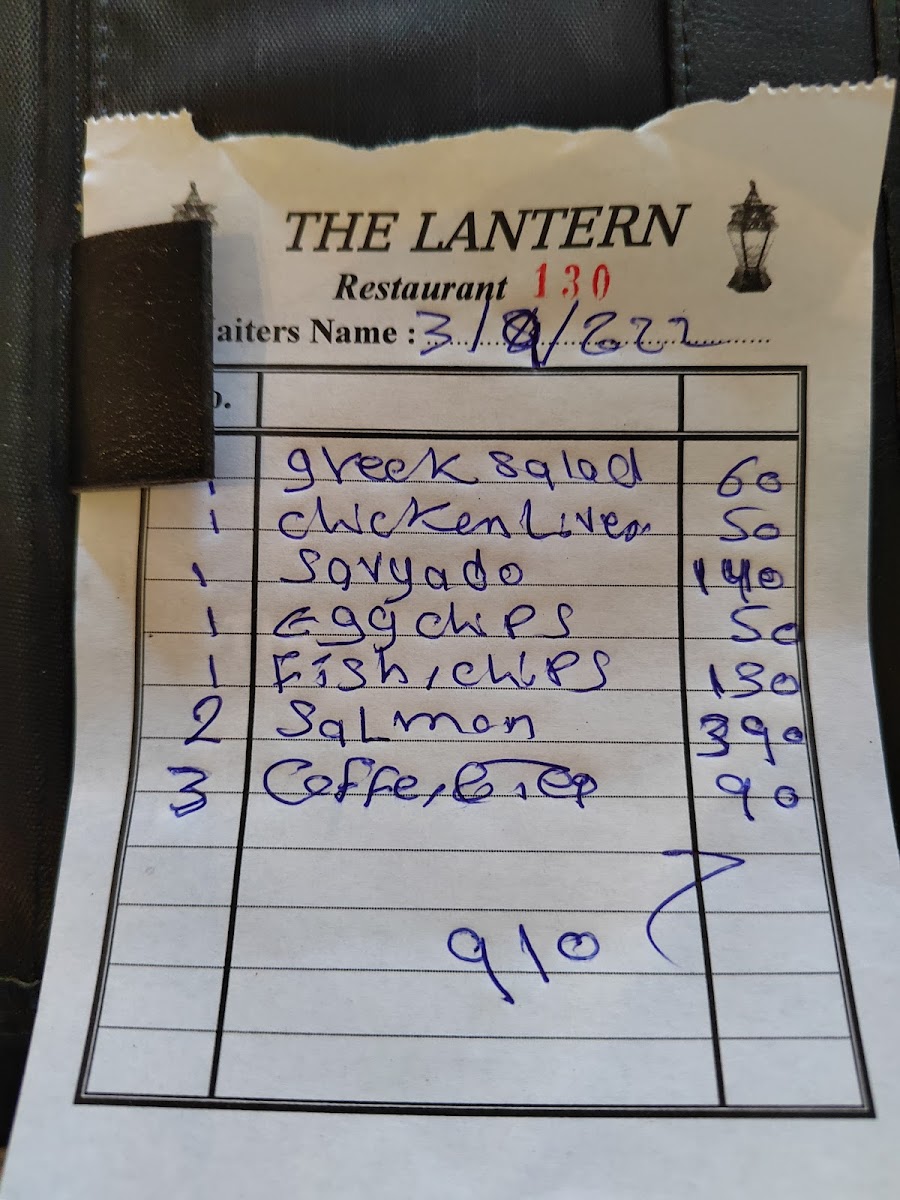 THE LANTERN
Restaurant 130
aiters Name : 3/8/2022
o.
1 greek salad 60
1 chicken Liver 50
1 Sayyado 140
1 Egg chips 50
1 Fish, chips 130
2 Salmon 390
3 Coffe, 90
910